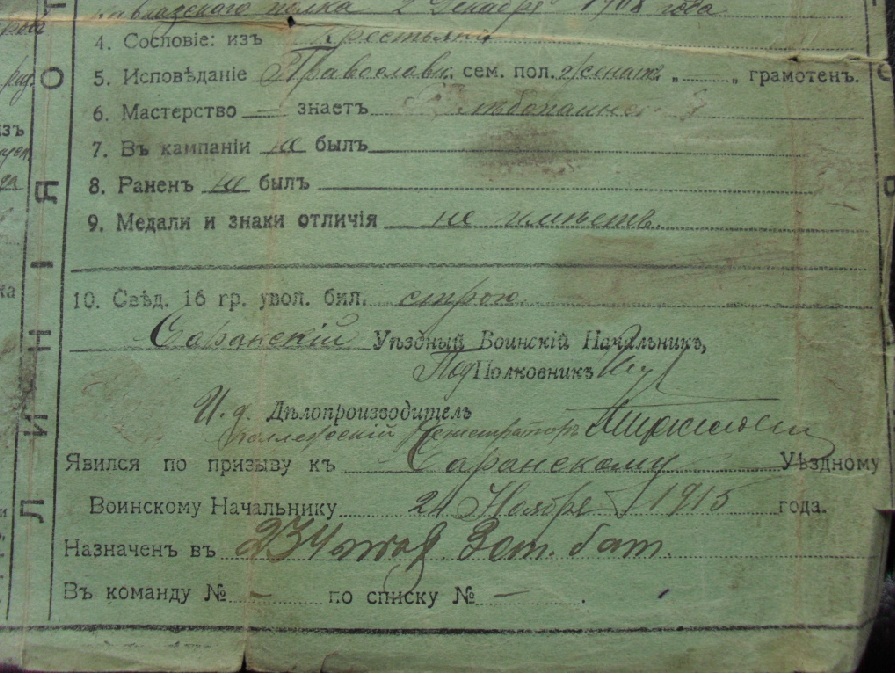 Кавказскаго полка 2 Декабря 1908 года
4. Сословіе: изъ крестьянъ
5. Исповѣданіе Православн. сем. пол. женатъ „ „ грамотенъ.
6. Мастерство — знаетъ хлѣбопашество
7. Въ кампаніи не былъ
8. Раненъ не былъ
9. Медали и знаки отличія не имѣетъ.
10. Свѣд. 16 гр. увол. бил. строю
Саранскій Уѣздный Воинскій Начальникъ,
ПодПолковникъ
И. д. Дѣлопроизводитель
Коллежскій Регистраторъ
Явился по призыву къ Саранскому Уѣздному
Воинскому Начальнику Ноября 1915 года.
Назначенъ въ 234 бат.
Въ команду № — по списку № — .
ЛИНІЯ ОТ